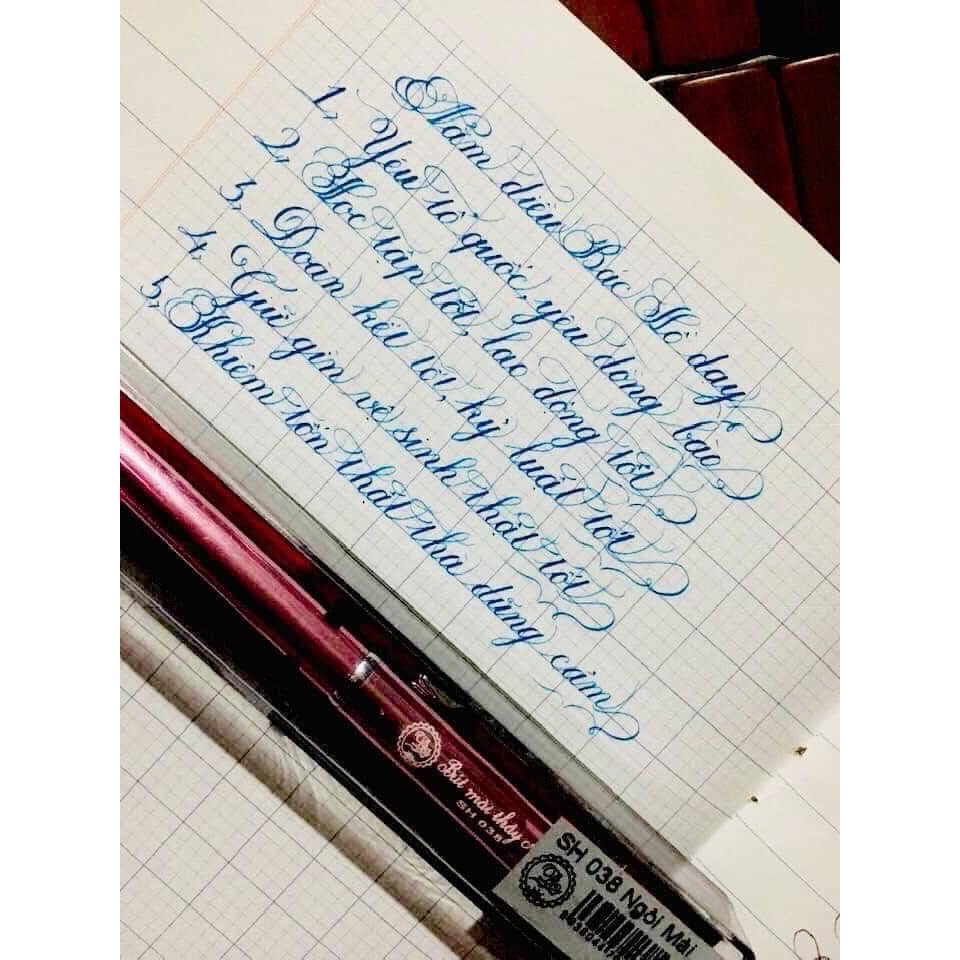 Năm điều Bác Hồ dạy
1, Yêu tổ quốc, yêu đồng bào
2, Học tập tốt, lao động tốt
3, Đoàn kết tốt, kỷ luật tốt
4, Giữ gìn vệ sinh thật tốt
5, Khiêm tốn thật thà dũng cảm
Bút mài thầy
SH 038
SH 038 Ngòi Mài